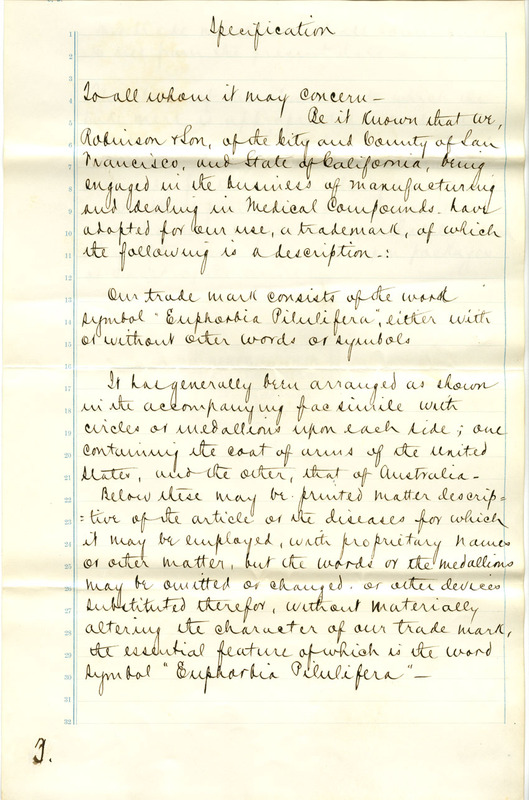 Specification
To all whom it may concern —
Be it Known that we,
Robinson & Son, of the City and County of San
Francisco, and State of California, being
engaged in the business of manufacturing
and dealing in Medical Compounds. have
adopted for our use, a trademark, of which
the following is a description -:
Our trade mark consists of the word
symbol "Euphorbia Pilulifera", either with
or without other words or symbols
It has generally been arranged as shown
in the accompanying facsimile with
circles or medallions upon each side; one
containing the coat of arms of the United
States, and the other, that of Australia -
Below these may be printed matter descrip=
=tive of the article or the diseases for which
it may be employed, with proprietary names
or other matter, but the words or the medallions
may be omitted or changed. or other devices
substituted therefor, without materially
altering the character of our trade mark,
the essential feature of which is the word
symbol "Euphorbia Pilulifera" —
3.